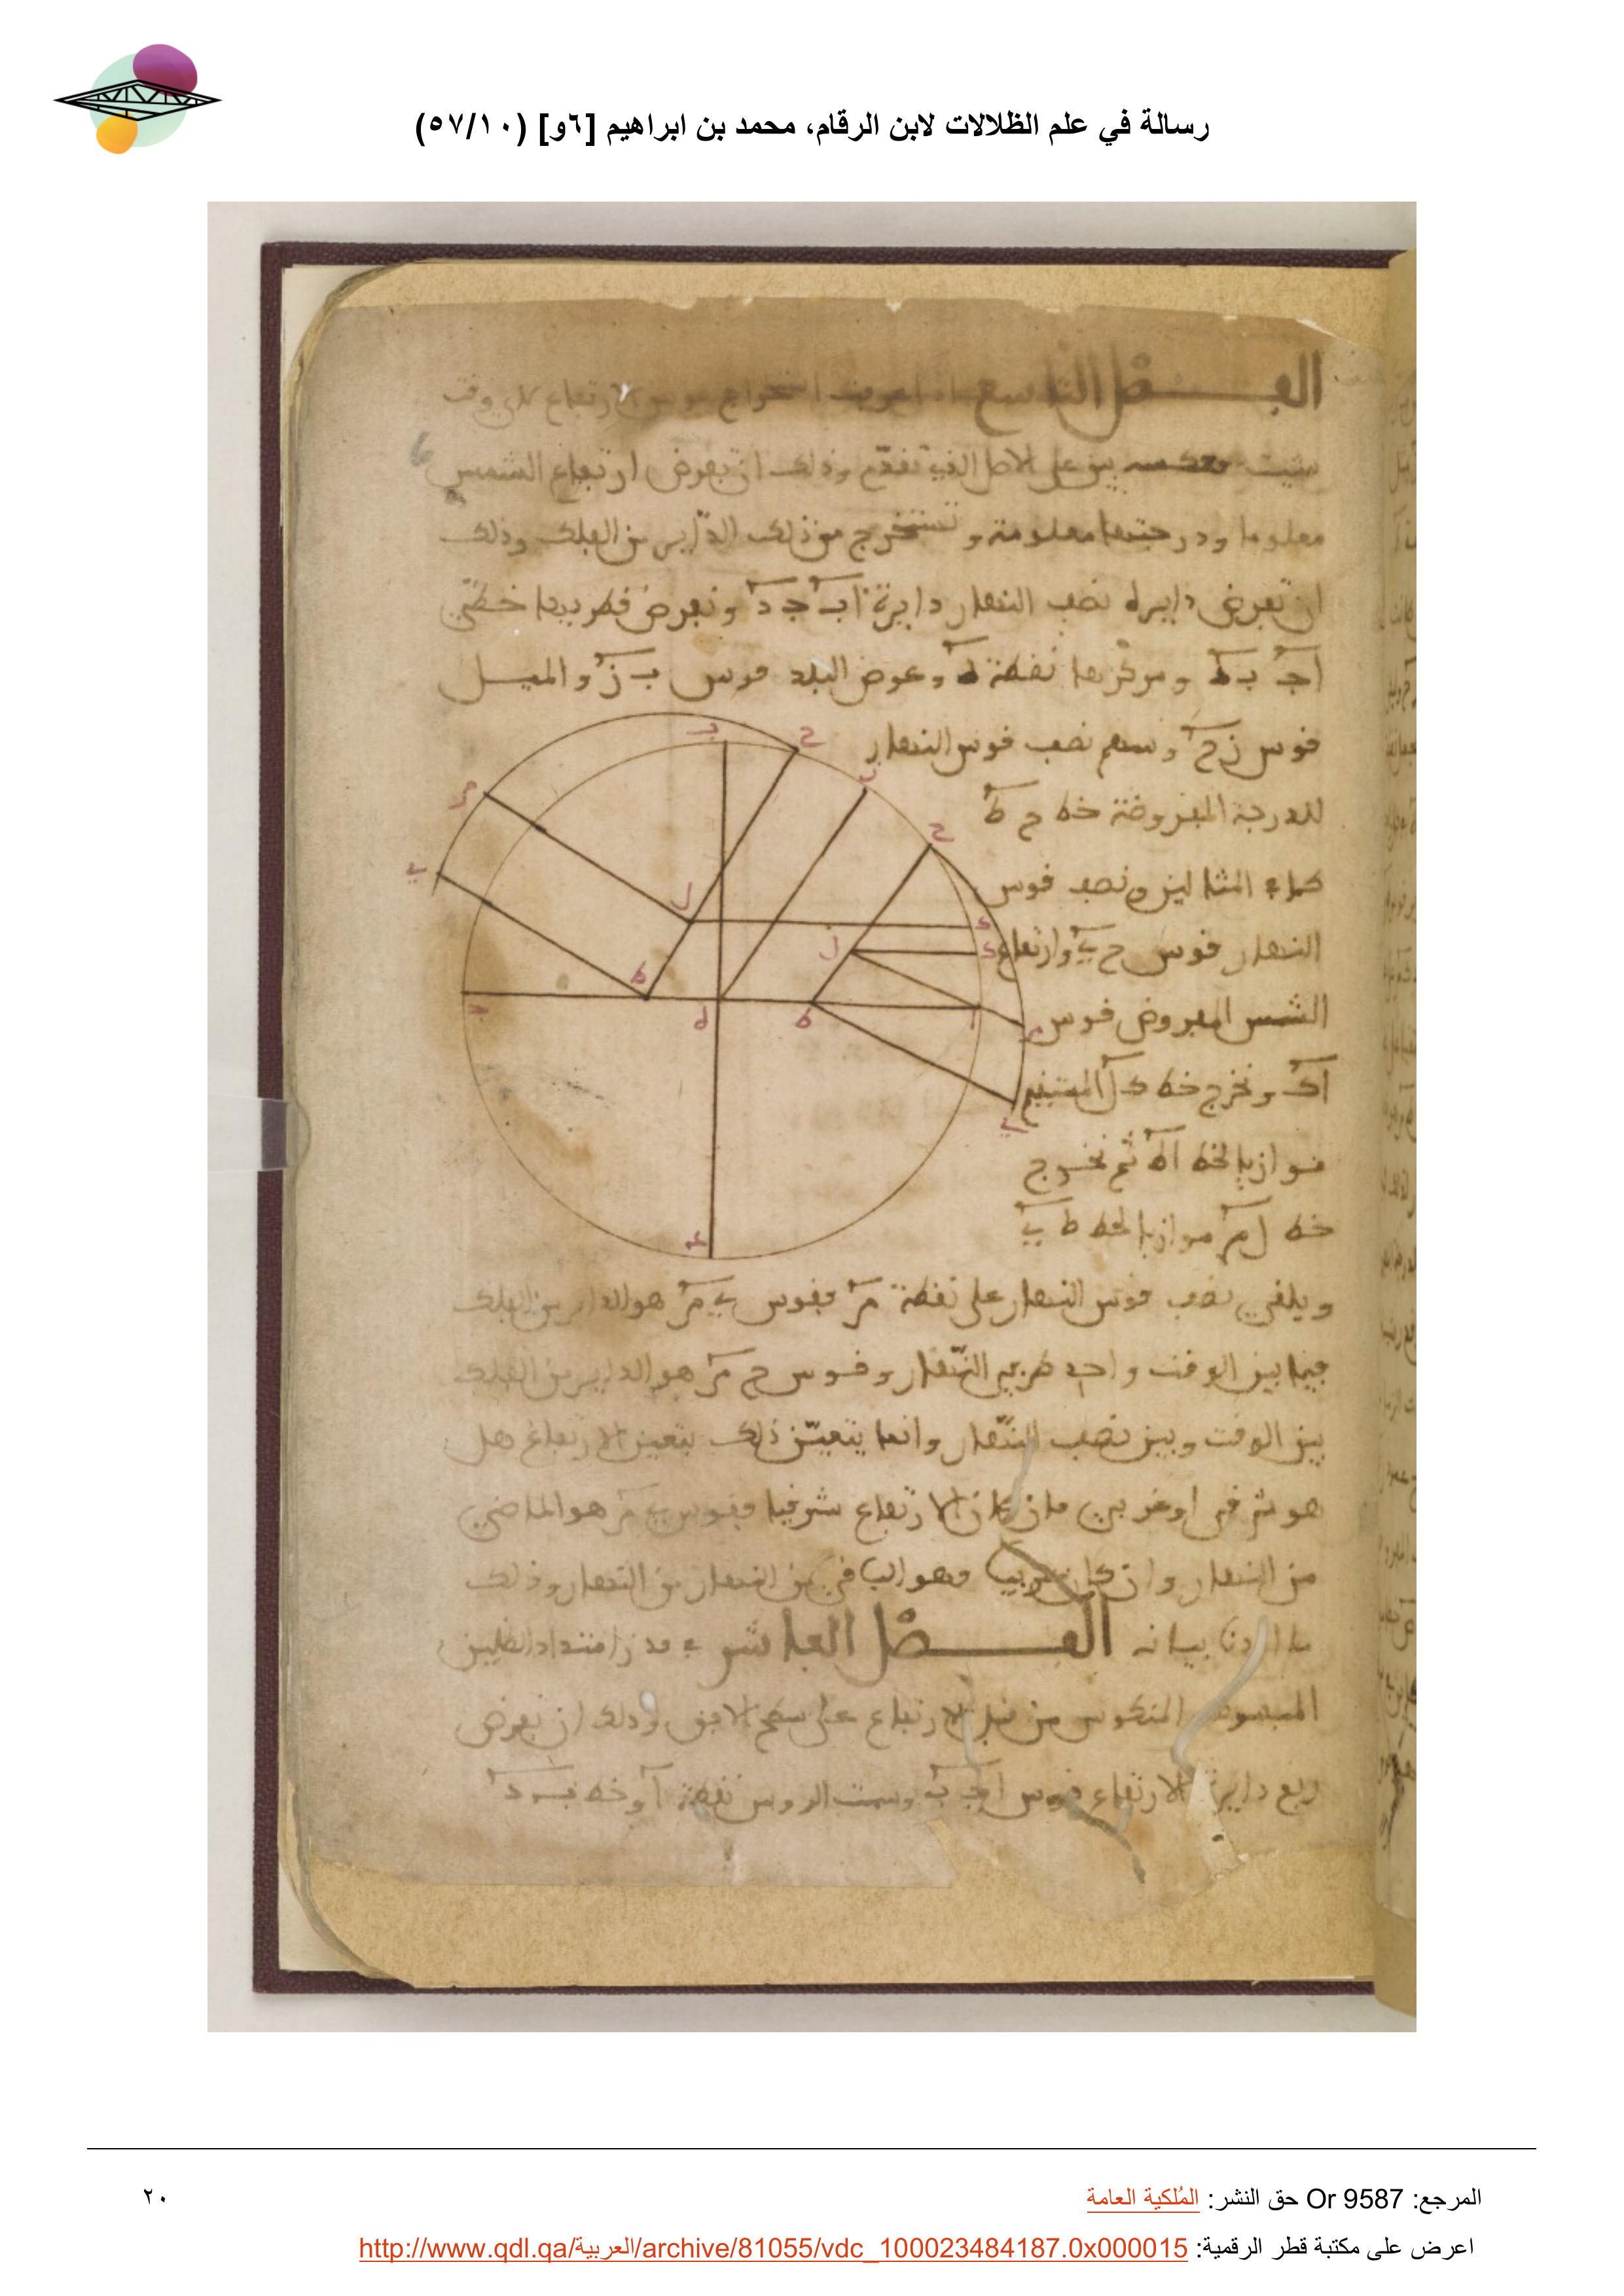 رسالة في علم الظلالات لابن الرقام، محمد بن ابراهيم [٦و] (٥٧/١٠)
الفصل التاسع اذا عرفت استخراج قوس الارتفاع لكل وقت
شيت بين على الاصل الذي تقدم وذلك ان نعرض ارتفاع الشمس
معلوما ودرجتها معلومة ونستخرج من ذلك الداير من الفلك وذلك
ان نعرض دايرة نصف النهار دايرة اب جد ونعرض قطريها خطي
اج بد ومركزها نقطة ه وعوض البلد قوس ب ز والميل
قوس زح وسهم نصف قوس النهار
للدرجة المفروضة خط ح ط
كماء المثالين ونصف قوس
النهار قوس ح ي وارتفاع
الشمس المفروض قوس
اك ونخرج خط كل المستقيم
موازيا لخط اه ثم نخرج
خط ل م موازيا لخط ط ي
ويلقى نصف قوس النهار على نقطة م فقوس ي م هو الداير من الفلك
فيما بين الوقت واحد طرفي النهار وقوس ح م هو الداير من الفلك
بين الوقت وبين نصف النهار وانما يتعين ذلك بتعين الارتفاع هل
هو شرقي او غربي فان كان الارتفاع شرقيا فقوس ي م هو الماضي
من النهار وان كان غربيا فهو الباقي من النهار من النهار وذلك
ما اردنا بيانه الفصل العاشر في قدر امتداد الظلين
المبسوط المنكوس من قبل الارتفاع على سطح الافق وذلك ان نعرض
ربع دايرة الارتفاع قوس اج ب وسمت الروس نقطة ا وخط ب د
المرجع: Or 9587 حق النشر: المُلكية العامة
٢٠
اعرض على مكتبة قطر الرقمية: http://www.qdl.qa/العربية/archive/81055/vdc_100023484187.0x000015